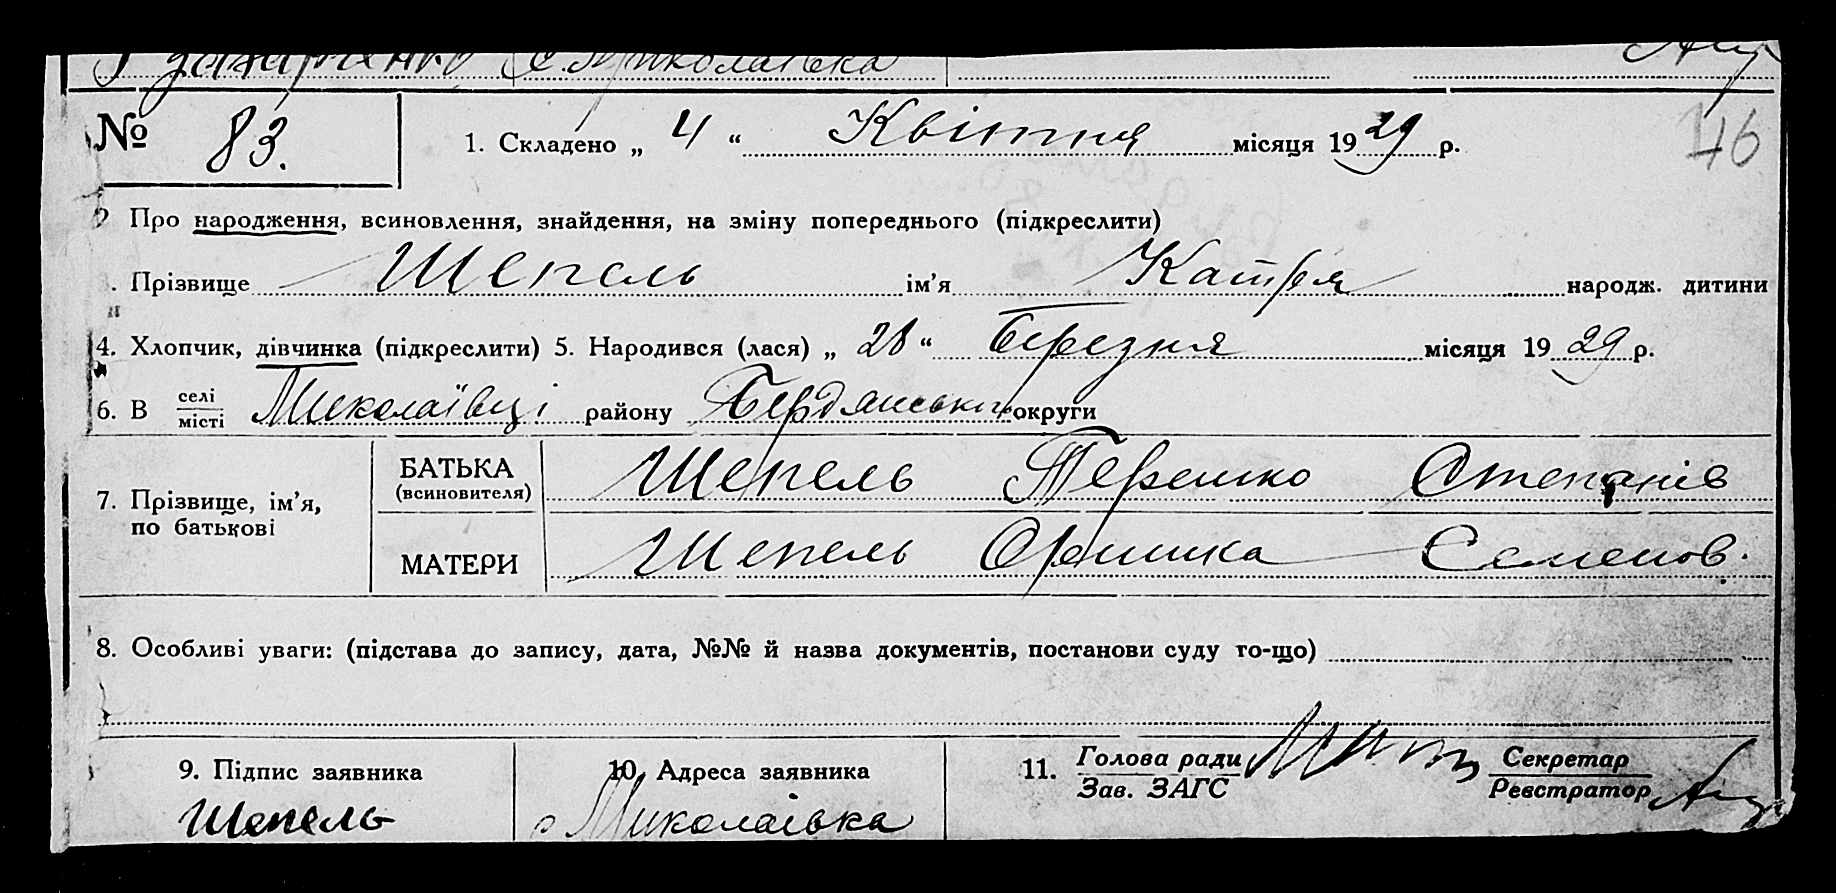 с. Миколаївка
№ 83. 1. Складено „ 4 “ Квітня місяця 1929 р.
46
2 Про народження, всиновлення, знайдення, на зміну попереднього (підкреслити)
3. Прізвище Шепель ім’я Катря народж. дитини
4. Хлопчик, дівчинка (підкреслити) 5. Народився (лася) „ 28 “ Березня місяця 1929 р.
6. В селі місті Миколаївці району Бердянської округи
7. Прізвище, ім’я, по батькові
БАТЬКА (всиновителя) Шепель Терешко Степанів
МАТЕРИ Шепель Оришка Семенов.
8. Особливі уваги: (підстава до запису, дата, №№ й назва документів, постанови суду то-що)
9. Підпис заявника
Шепель
10. Адреса заявника
с Миколаївка
11. Голова ради Зав. ЗАГС
Секретар Реєстратор